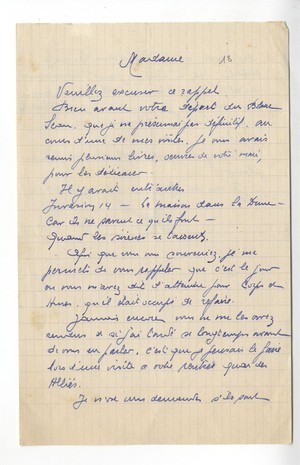 Madame 13
Veuillez excuser ce rappel.
Bien avant votre départ du Blanc
Seau, que je ne présumai pas définitif, au
cours d'une de mes visites, je vous avais
remis plusieurs livres, œuvres de votre mari,
pour les dédicacer.
Il y avait entr'autres
Invasion 14 — La maison dans la Dune —
Car ils ne savent ce qu'ils font —
Quand les sirènes se taisent.
Afin que vous vous souveniez, je me
permets de vous rappeler que c'est le jour
où vous m'avez dit d'attendre pour Corps et
Ames, qu'il était occupé de refaire.
Jamais encore vous ne me les avez
remis et si j'ai tardé si longtemps avant
de vous en parler, c'est que je pensais le faire
lors d'une visite à votre rentrée quai des
Alliés.
Je viens vous demander s'ils sont